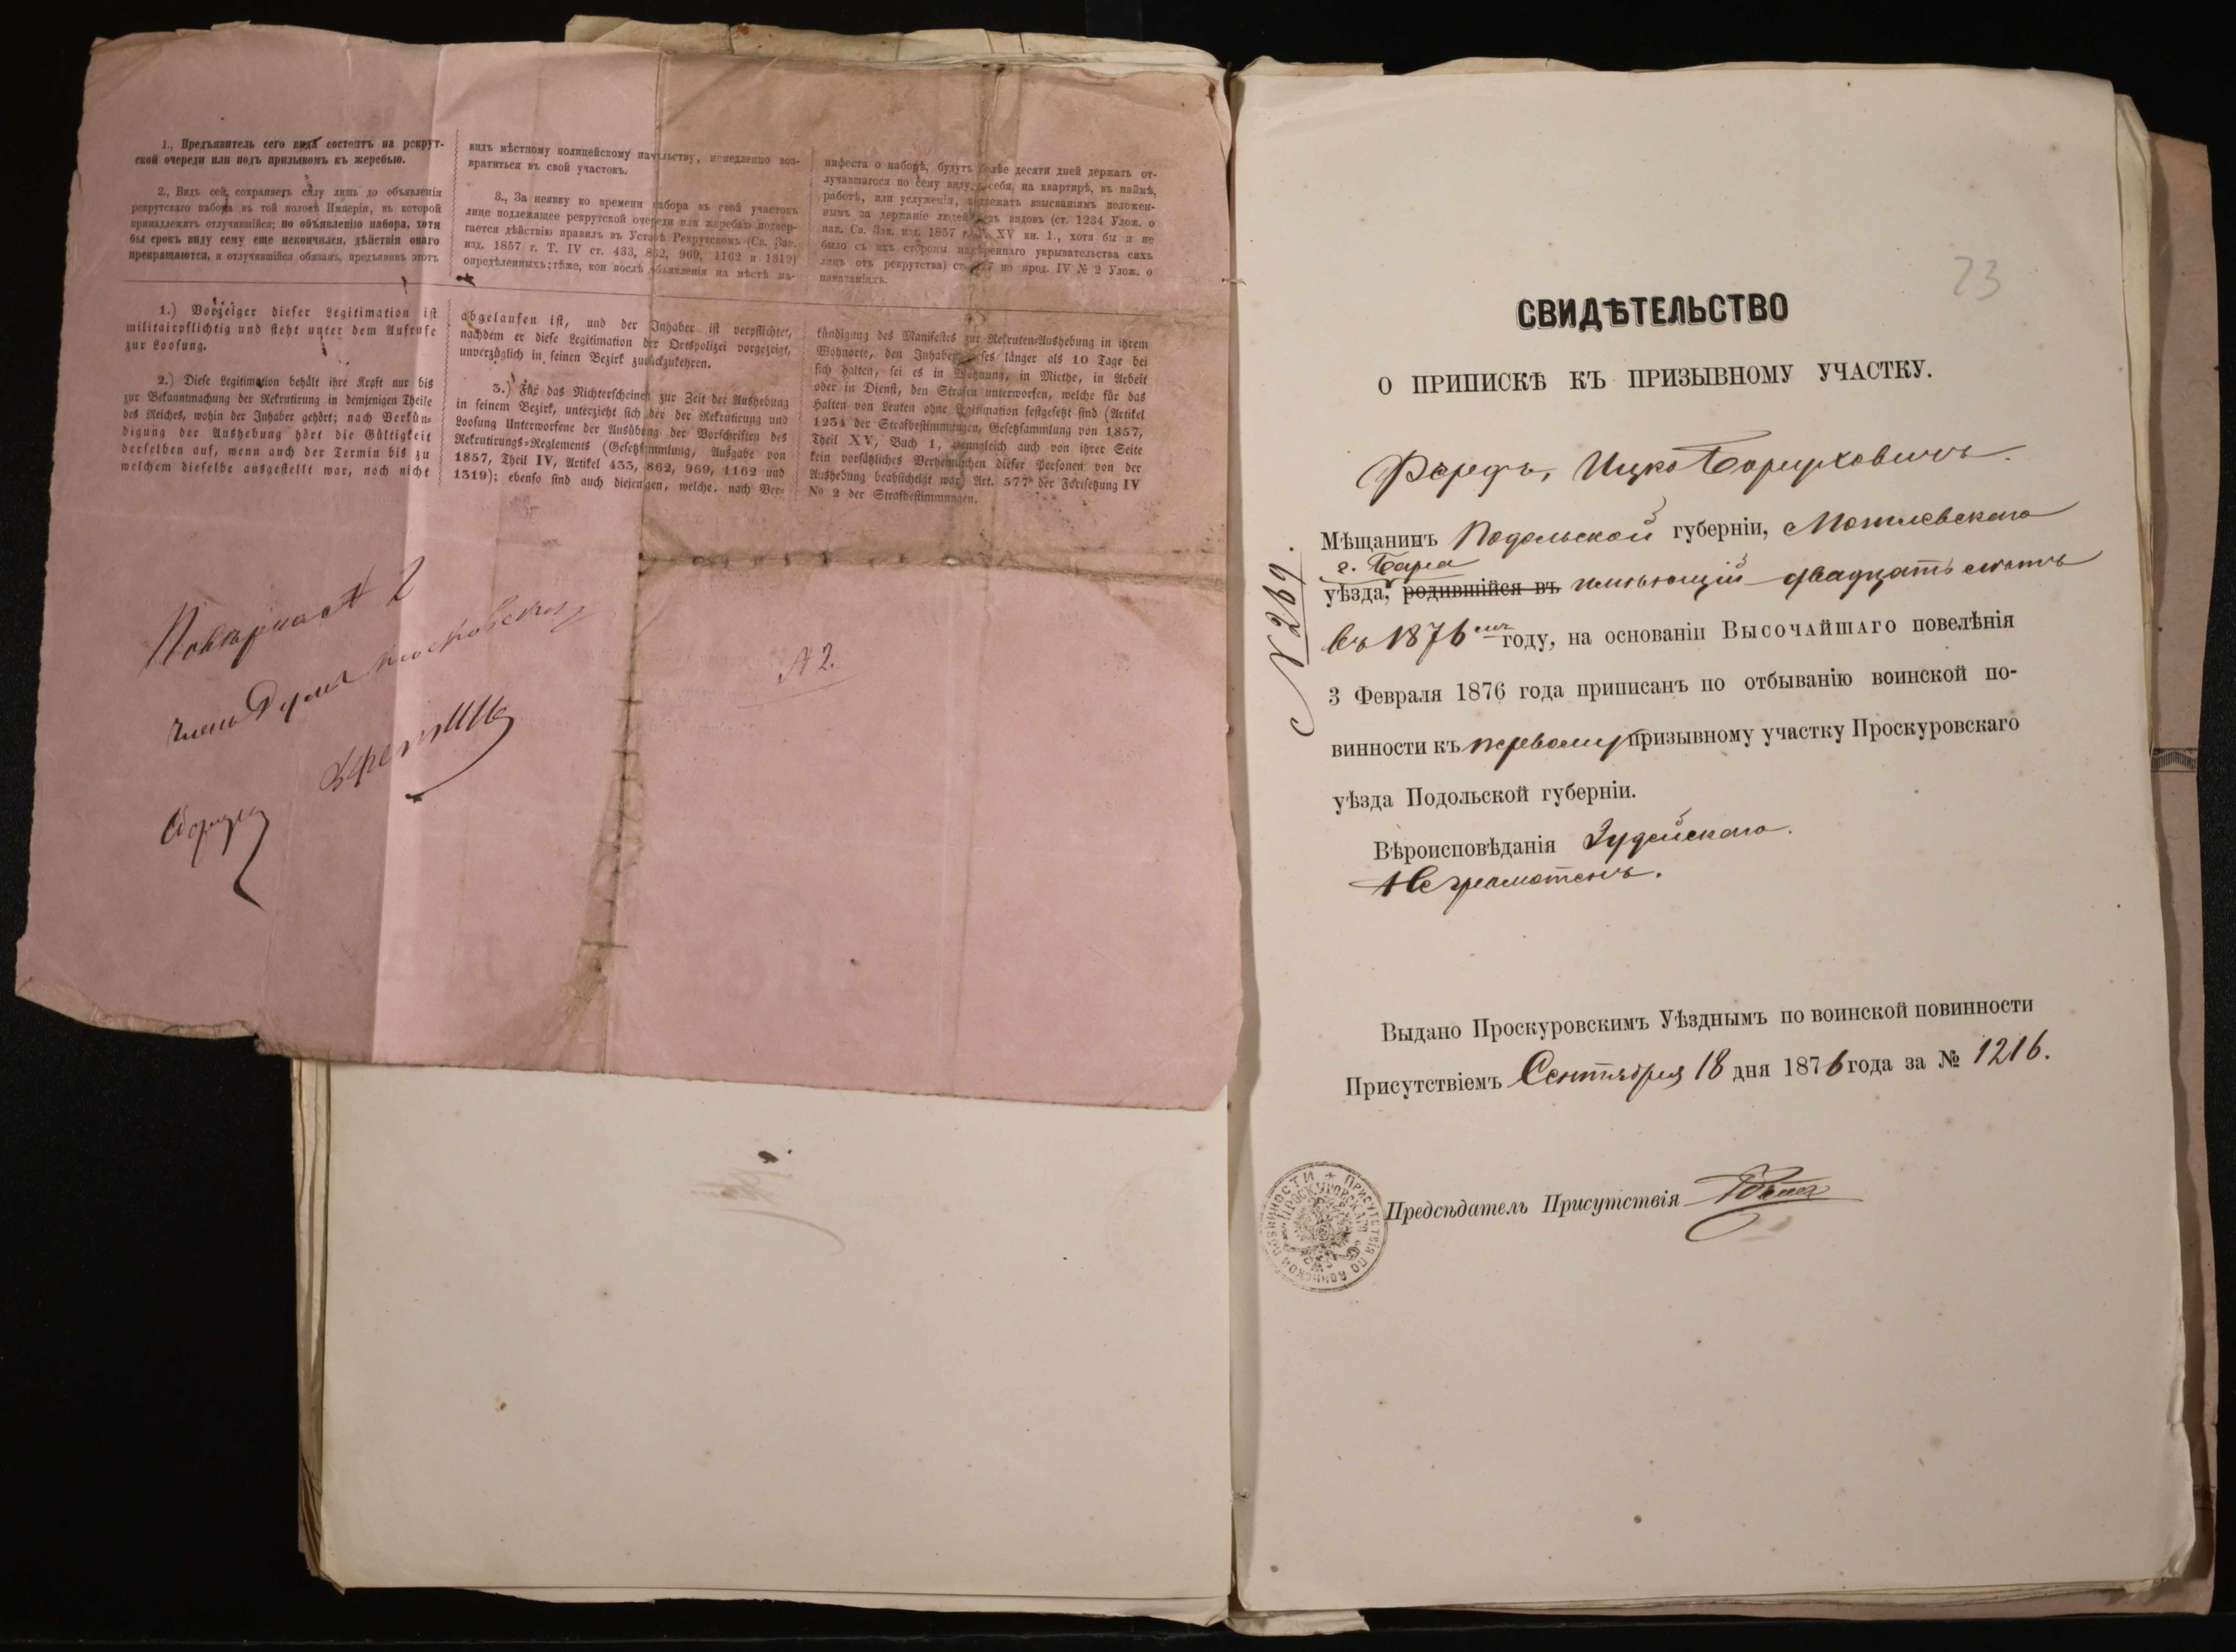 1., Предъявитель сего вида состоитъ на рекрут-
ской очереди или подъ призывомъ къ жеребью.
2., Видъ сей, сохраняетъ силу лишь до объявленія
рекрутскаго набора въ той полосѣ Имперіи, въ которой
принадлежитъ отлучившійся; по объявленію набора, хотя
бы срокъ виду сему еще нескончился, дѣйствіи онаго
прекращаются, и отлучившійся обязанъ, предъявивъ этотъ
видъ мѣстному полицейскому начальству, немедленно воз-
вратиться въ свой участокъ.
3., За неявку ко времени набора въ свой участокъ
лице подлежащее рекрутской очереди или жеребью подвер-
гается дѣйствію правилъ въ Уставѣ Рекрутскомъ (Св. Зак.
изд. 1857 г. Т. IV ст. 433, 862, 969, 1162 и 1319)
опредѣленныхъ; тѣже, кои послѣ объявленія на мѣстѣ ма-
нифеста о наборѣ, будутъ болѣе десяти дней держать от-
лучавшагося по сему виду, у себя, на квартирѣ, въ наймѣ,
работѣ, или услуженіи, подлежатъ взысканіямъ положен-
нымъ за держаніе людей безъ видовъ (ст. 1234 Улож. о
нак. Св. Зак. изд. 1857 г. Т. XV кн. 1., хотя бы и не
было съ ихъ стороны намѣреннаго укрывательства сихъ
лицъ отъ рекрутства) ст. 577 по прод. IV № 2 Улож. о
наказаніяхъ.
1.) Vorzeiger dieser Legitimation ist
militairpflichtig und steht unter dem Aufrufe
zur Loosung.
2.) Diese Legitimation behält ihre Kraft nur bis
zur Bekanntmachung der Rekrutirung in demjenigen Theile
des Reiches, wohin der Inhaber gehört; nach Verkün-
digung der Aushebung hört die Gültigkeit
derselben auf, wenn auch der Termin bis zu
welchem dieselbe ausgestellt war, noch nicht
abgelaufen ist, und der Inhaber ist verpflichtet,
nachdem er diese Legitimation der Ortspolizei vorgezeigt,
unverzüglich in seinen Bezirk zurückzukehren.
3.) Für das Nichterscheinen zur Zeit der Aushebung
in seinem Bezirk, unterzieht sich der der Rekrutirung und
Loosung Unterworfene der Ausübung der Vorschriften des
Rekrutirungs-Reglements (Gesetzsammlung, Ausgabe von
1857, Theil IV, Artikel 433, 862, 969, 1162 und
1319); ebenso sind auch diejenigen, welche, nach Ver-
kündigung des Manifestes zur Rekruten-Aushebung in ihrem
Wohnorte, den Inhaber dieses länger als 10 Tage bei
sich halten, sei es in Wohnung, in Miethe, in Arbeit
oder in Dienst, den Strafen unterworfen, welche für das
Halten von Leuten ohne Legitimation festgesetzt sind (Artikel
1234 der Strafbestimmungen, Gesetzsammlung von 1857,
Theil XV, Buch 1, wenngleich auch von ihrer Seite
kein vorsätzliches Verheimlichen dieser Personen von der
Aushebung beabsichtigt war) Art. 577 der Fortsetzung IV
No 2 der Strafbestimmungen.
№ 2
№ 2.
23
СВИДѢТЕЛЬСТВО
О ПРИПИСКѢ КЪ ПРИЗЫВНОМУ УЧАСТКУ.
Ицко Борухович.
Мѣщанинъ Подольской губерніи, Могилевскаго
г. Бара
уѣзда, родившійся въ имѣющій двадцать
въ 1876 году, на основаніи Высочайшаго повелѣнія
3 Февраля 1876 года приписанъ по отбыванію воинской по-
винности къ первому призывному участку Проскуровскаго
уѣзда Подольской губерніи.
Вѣроисповѣданія Іудейскаго.
Неграмотенъ.
№ 269.
Выдано Проскуровскимъ Уѣзднымъ по воинской повинности
Присутствіемъ Сентября 18 дня 1876 года за № 1216.
Предсѣдатель Присутствія
ПРИСУТСТВІЯ ПО ВОИНСКОЙ ПОВИННОСТИ
ПРОСКУРОВСКАГО